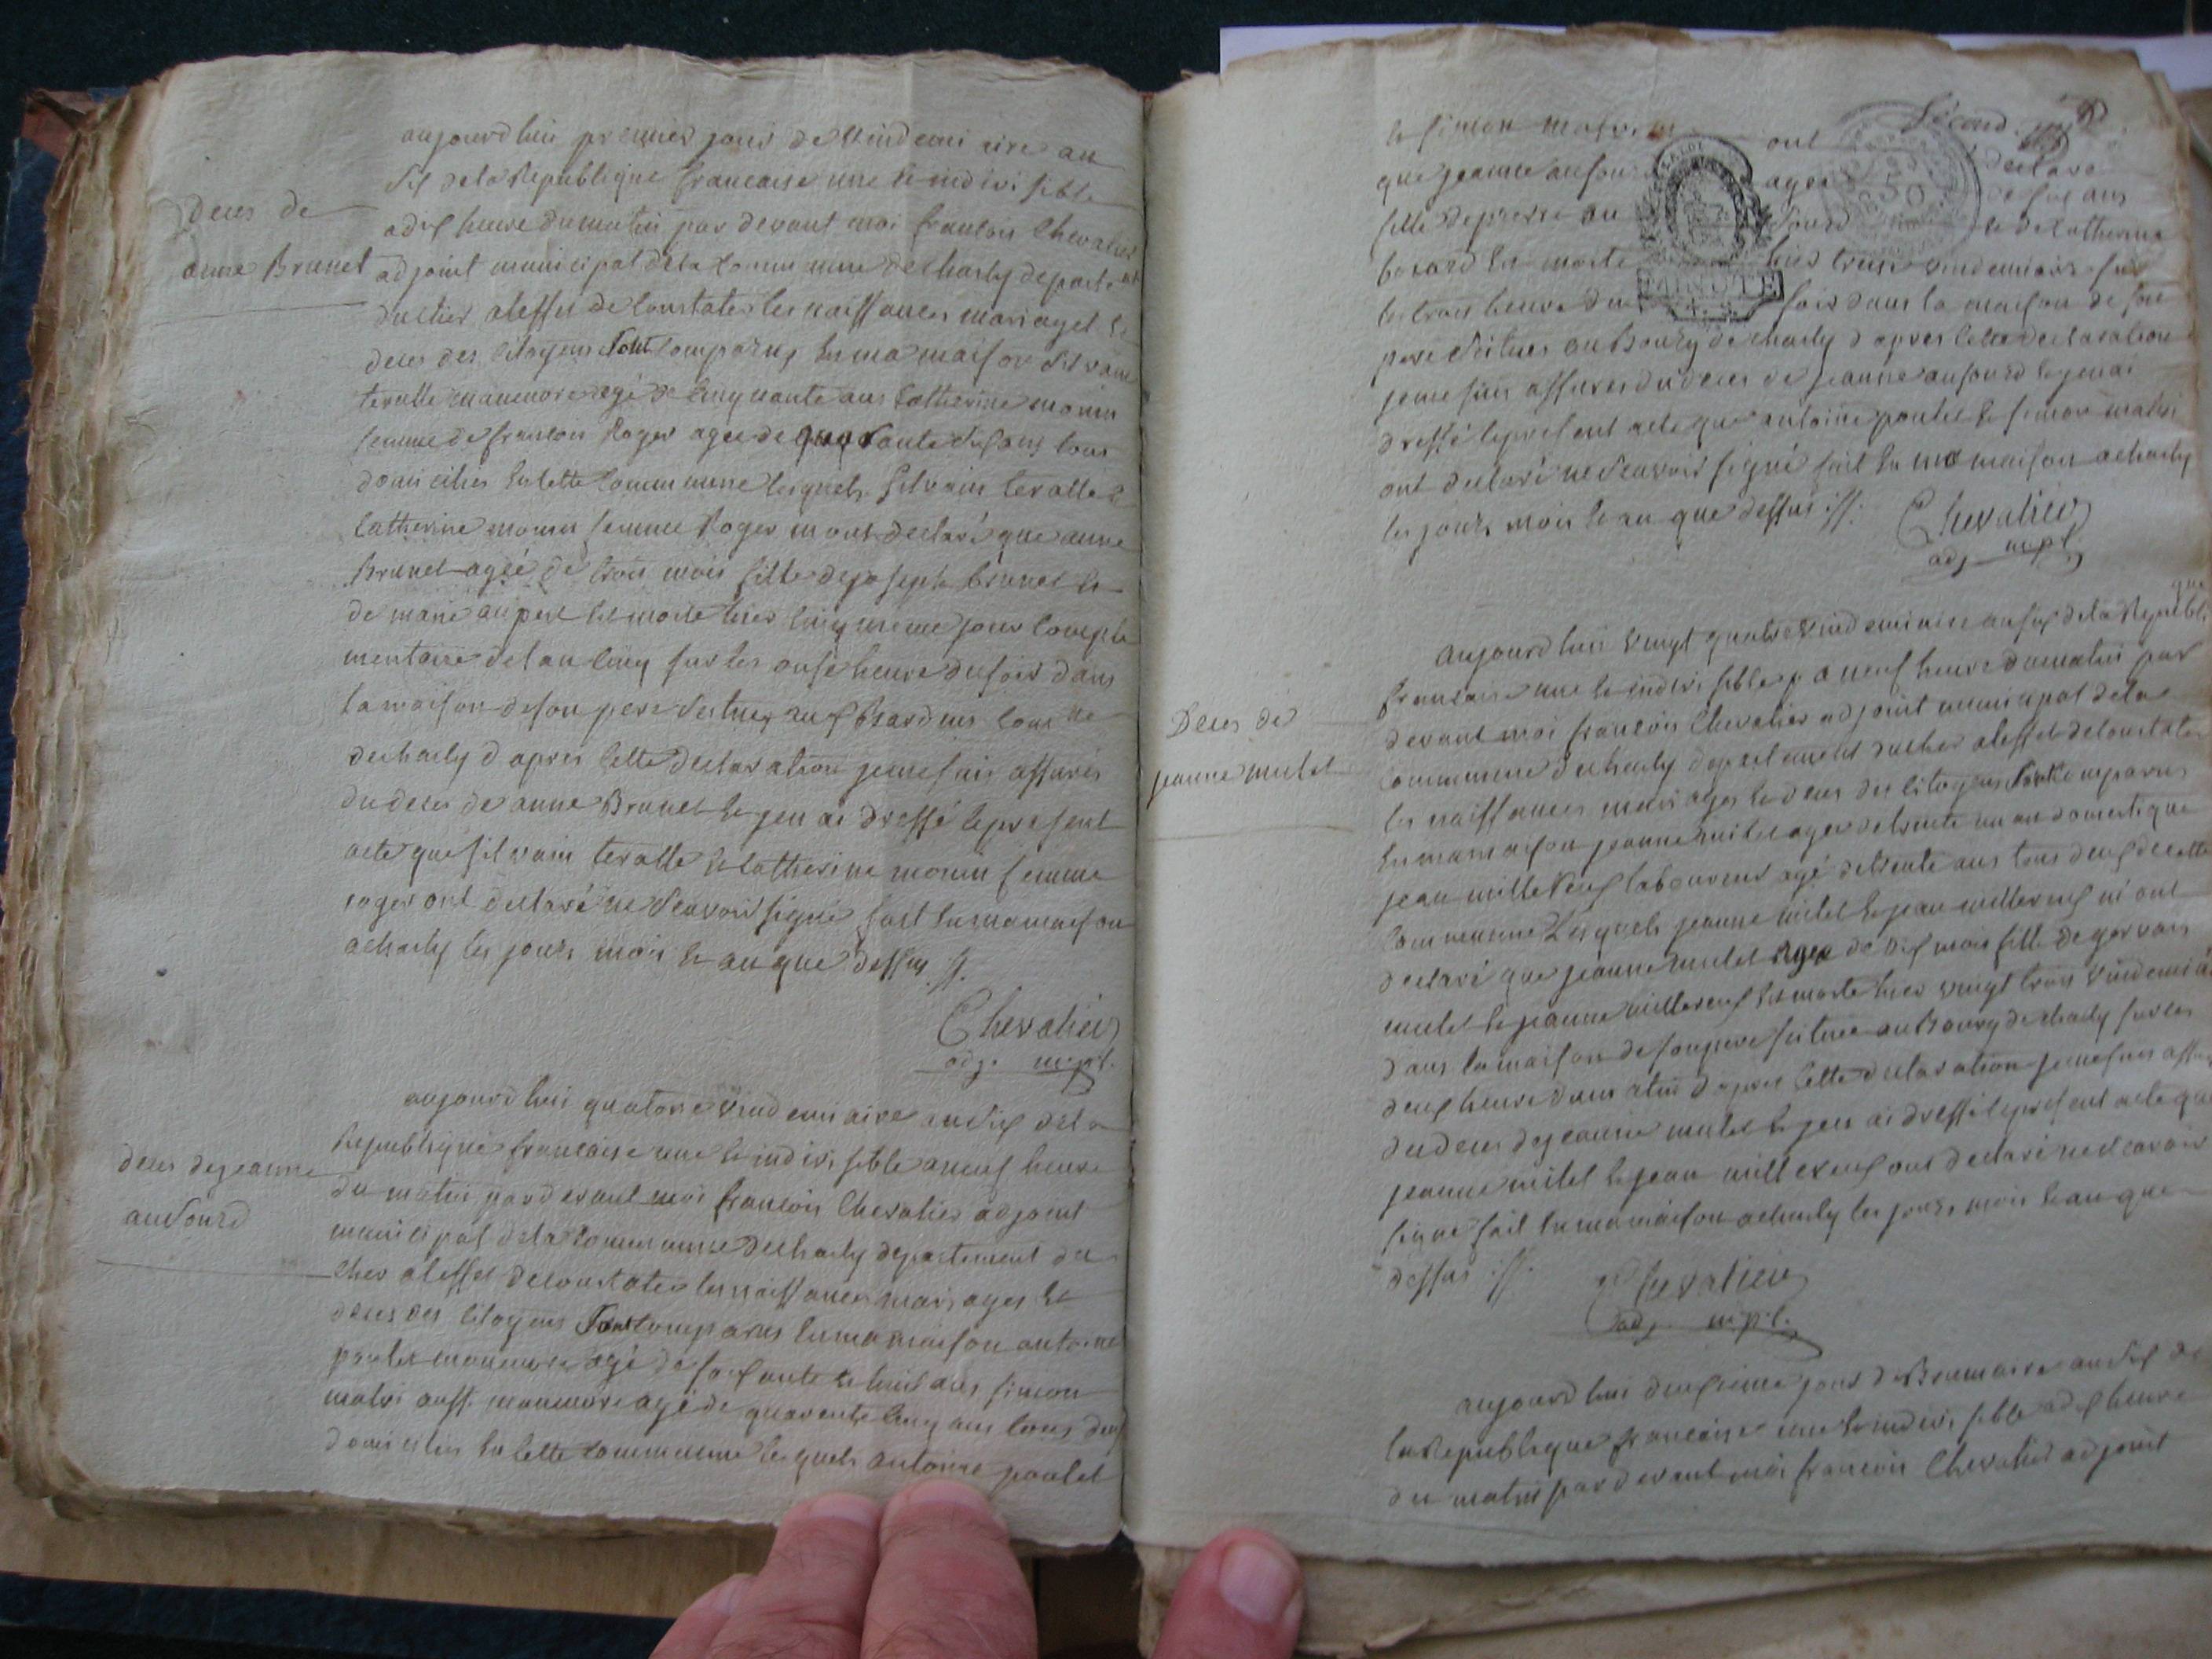 Deces de
anne Brunet
aujourdhui premier jour de Vindemi aire an
Six dela Republique francaise une et indivi sible
a dix heure du matin par devant moi francois Chevalier
adjoint municipal dela Commune decharly departemt
du cher aleffet de Constater les naissances mariages et
deces des Citoyens Sont Comparus en ma maison Silvain
teralle manuvore agé de Cinquante ans Catherine monin
femme de francois Roger agee de quarante Six ans tous
domicilies en cette Commune lesquels Silvain teralle et
Catherine monin femme Roger mont declaré que anne
Brunet agéé de trois mois fille de joseph brunet et
de marie aupert est morte hier Cinquieme jour Comple
mentaire de lan Cinq sur les onse heure du soir dans
la maison de son pere Scitues aux Bardins Comne
decharly d apres Cette declaration je me suis assures
du deces de anne Brunet et jen ai dressé le present
acte que silvain teralle et Catherine monin femme
roger ont declaré ne Scavoir signé fait en ma maison
acharly les jours mois et an que dessus ://.
Chevalier
adj. mpl.
deces de jeanne
aufourd
aujourdhui quatorse Vindemiaire an Six dela
Republique francaise une et indivi sible a neuf heure
du matin par devant moi francois Chevalier adjoint
municipal dela Commune decharly departement du
Cher aleffet de Constater les naissances mariages et
deces des Citoyens Sont Comparus en ma maison antoine
poulet manuvre agé de soixante et huit ans simon
malvi auss. manuvore agé de quarente Cinq ans tous deux
domicilies en Cette Commune lesquels antoine poulet
Second.
et simon malvi ont declare
que jeanne aufourd agee de six ans
fille de pierre aufourd et de Catherine
est morte hier treise vindemiaire sur
les trois heure du soir dans la maison de son
pere Scitues au Bourg de charly d apres Cette declaration
je me suis assures du deces de jeanne aufourd et jenai
dressé le present acte que antoine poulet et simon malvi
ont declaré ne Scavoir signé fait en ma maison acharly
les jours mois et an que dessus ://.
Chevalier
adj mpl.
Deces de
jeanne mulet
aujourdhui Vingt quatre Vindemiaire an six dela Republique
francaise une et indivi sible a neuf heure du matin par
devant moi francois Chevalier adjoint municipal dela
Commune decharly departement du cher aleffet de Constater
les naissances mariages et deces des Citoyens Sont Comparus
en ma maison jeanne milet agee de trente un an domestique
jean millereux laboureur agé de trente ans tous deux de cette
Commune Lesquels jeanne milet et jean millereux m ont
declaré que jeanne mulet agee de dix mois fille de gervais
mulet et jeanne millereux est morte hier vingt trois Vindemiaire
dans la maison de son pere scitues au Bourg de charly sur les
deux heure du matin d apres Cette declaration je me suis assures
du deces de jeanne mulet et jen ai dressé le present acte que
jeanne milet et jean millereux ont declaré ne Scavoir
signé fait en ma maison acharly les jours mois et an que
dessus ://.
Chevalier
adj. mpl.
aujourdhui deuxieme jour de Brumaire an Six de
la Republique francaise une et indivi sible a dix heure
du matin par devant moi francois Chevalier adjoint